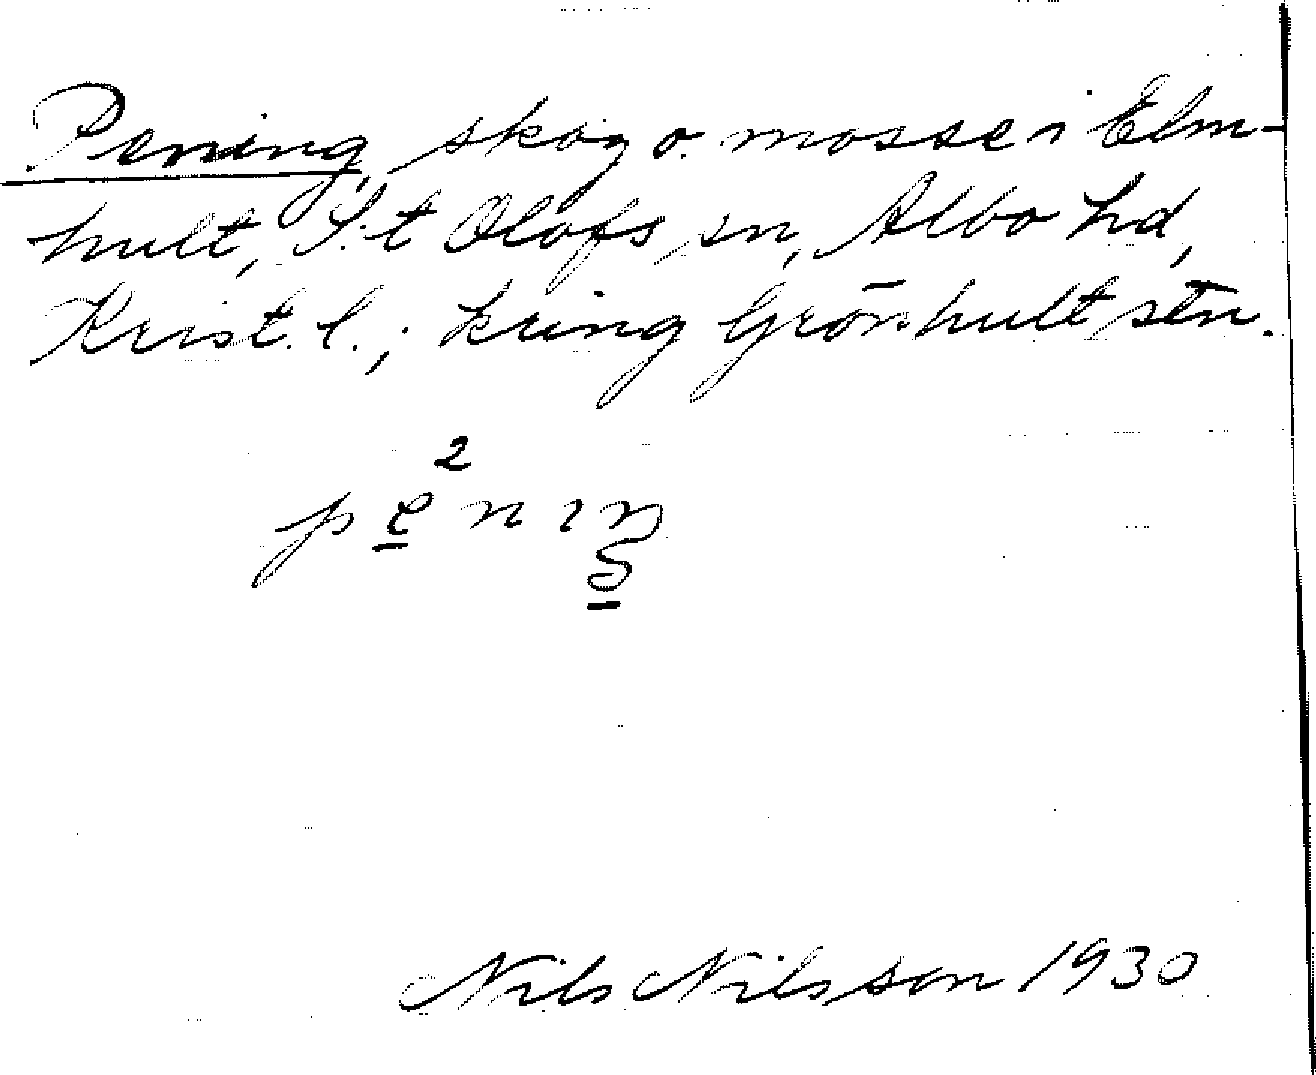 Pening, skog o. mosse i Elm-
hult, S:t Olofs sn, Albo hd,
Krist. l.; kring Grönhult stn.
2
p e n ı ŋ
Nils Nilsson 1930